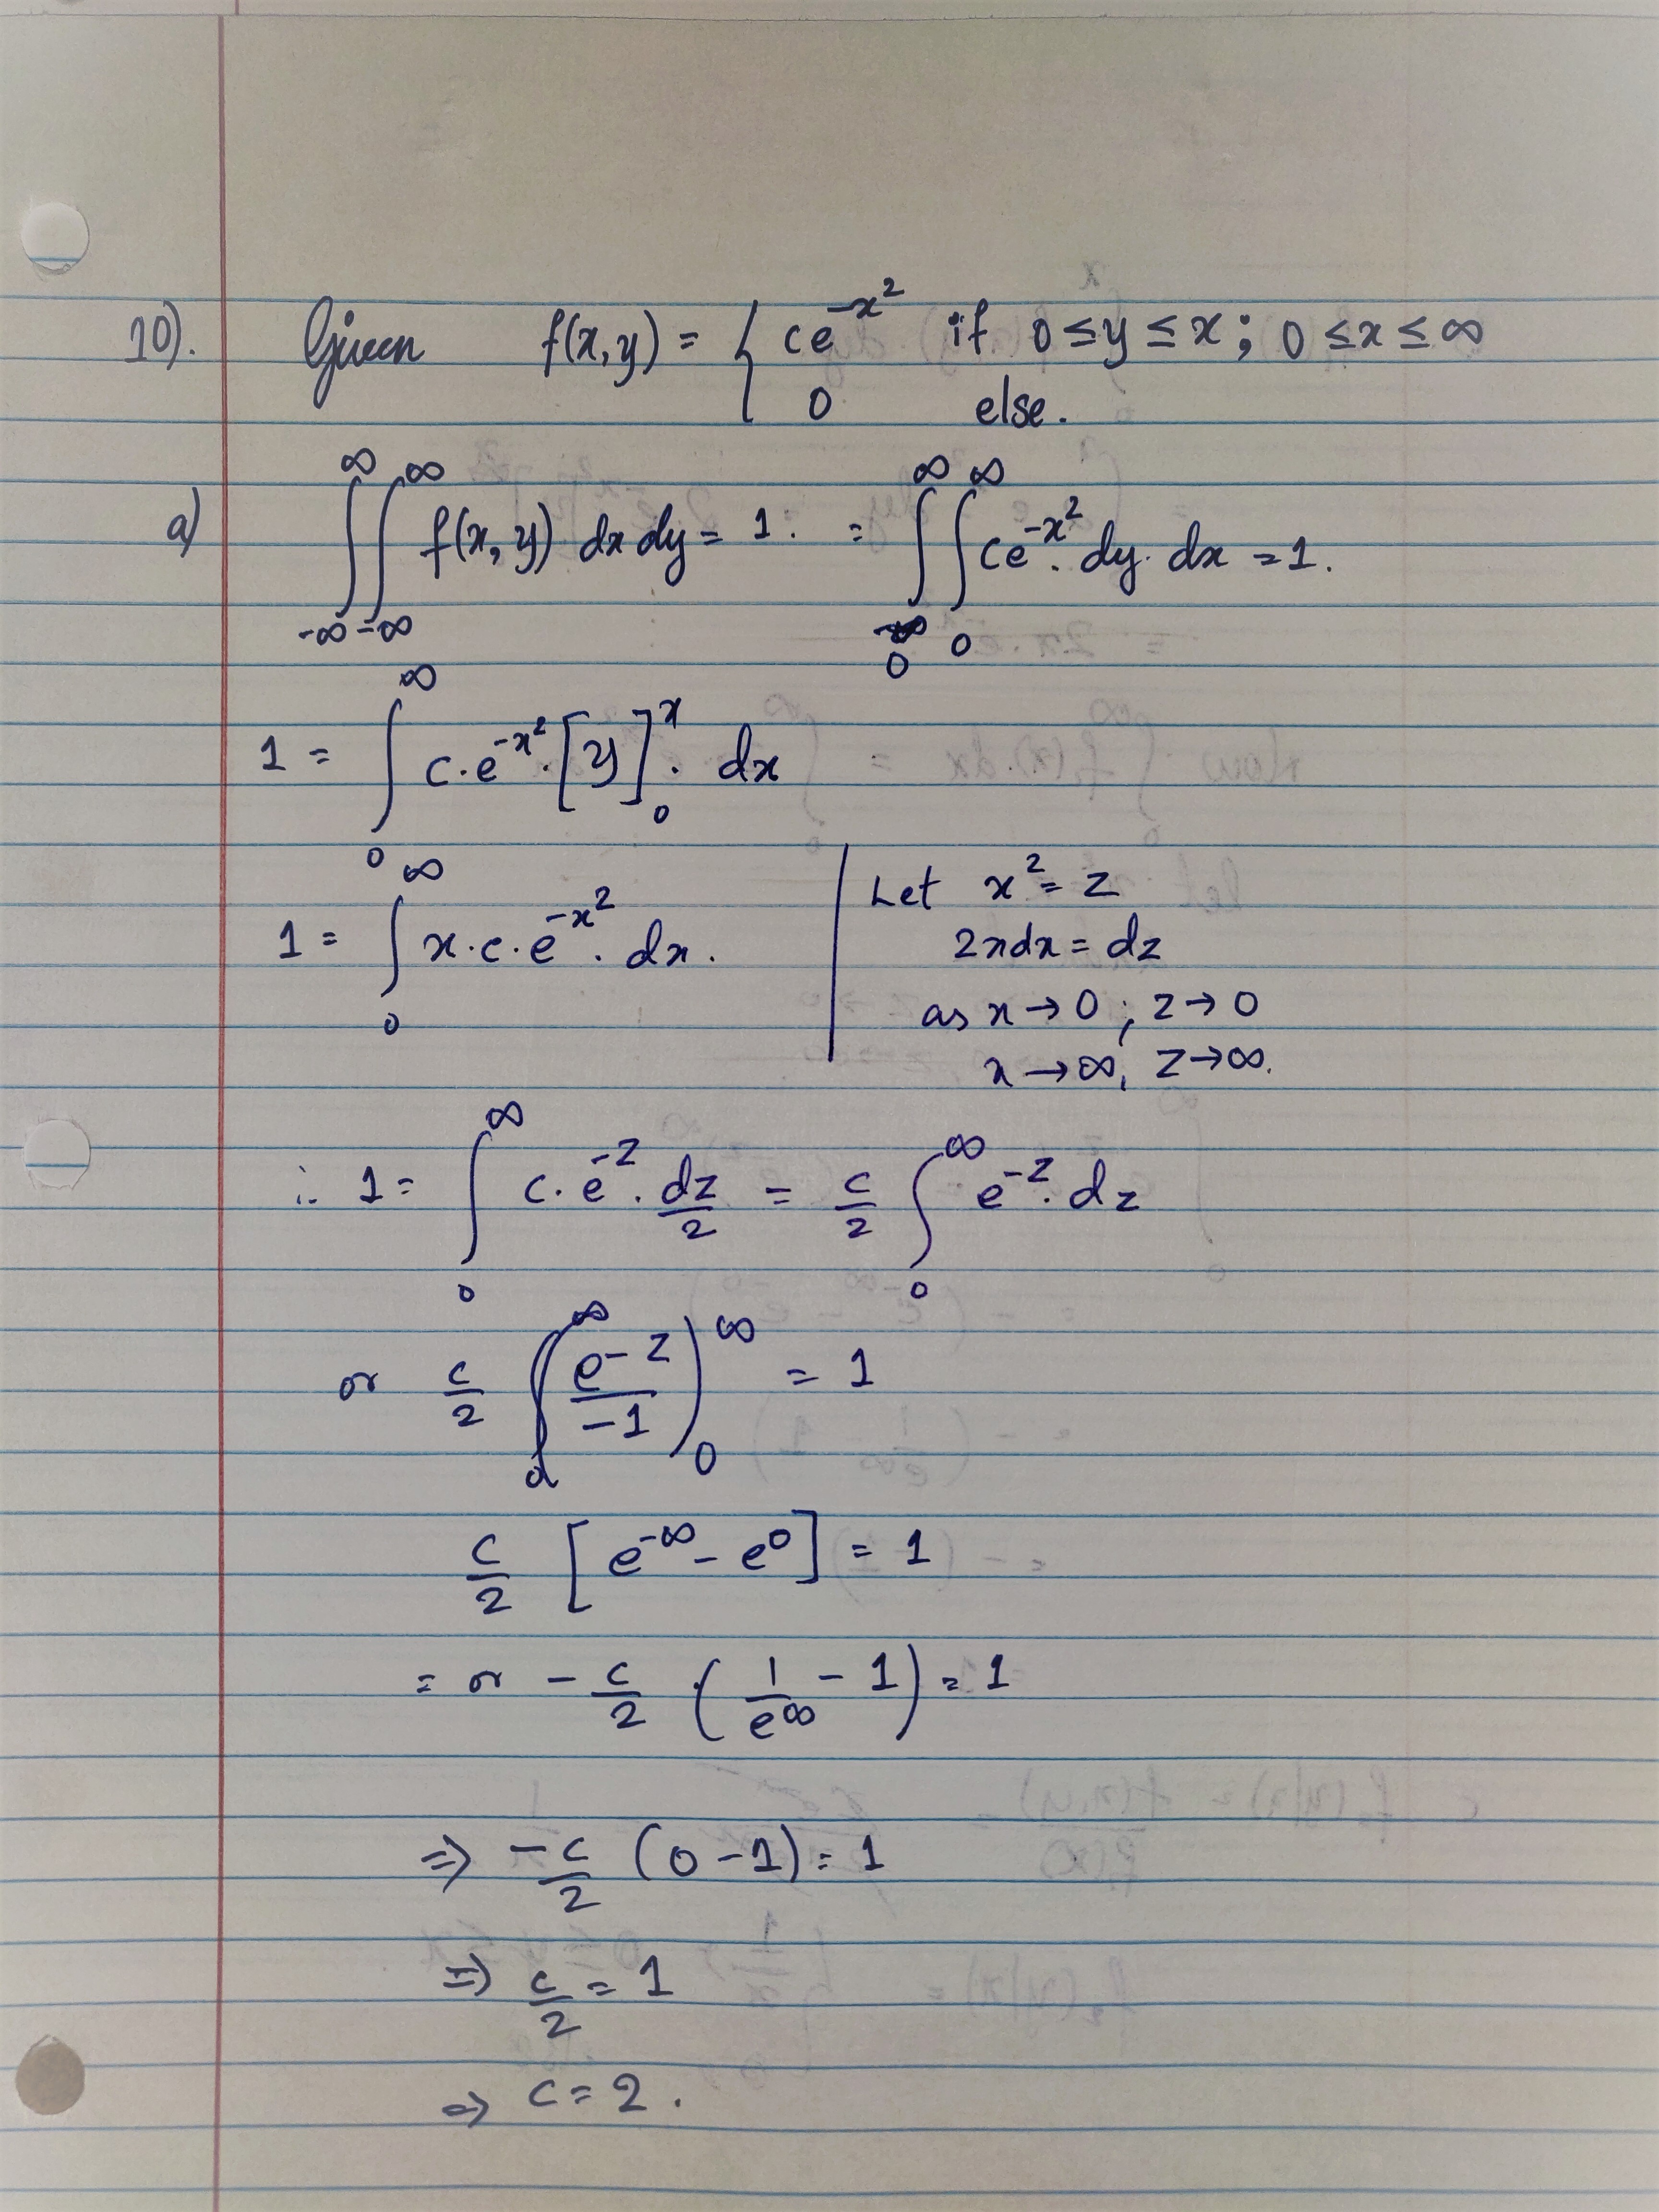 10). Given f(x,y) = { ce^{-x^2} if 0 ≤ y ≤ x ; 0 ≤ x ≤ ∞
0 else.
a) ∫_{-∞}^{∞} ∫_{-∞}^{∞} f(x,y) dx dy = 1. = ∫_0^∞ ∫_0^∞ ce^{-x^2}. dy. dx = 1.
1 = ∫_0^∞ c.e^{-x^2}.[y]_0^x . dx
1 = ∫_0^∞ x.c.e^{-x^2}. dx.
Let x^2 = z
2xdx = dz
as x → 0 ; z → 0
x → ∞, z → ∞.
∴ 1 = ∫_0^∞ c. e^{-z}. dz/2 = c/2 ∫_0^∞ e^{-z}. dz
or c/2 (e^{-z}/-1)_0^∞ = 1
c/2 [e^{-∞} - e^0] = 1
= or -c/2 (1/e^∞ - 1) = 1
⇒ -c/2 (0 - 1) = 1
⇒ c/2 = 1
⇒ c = 2.